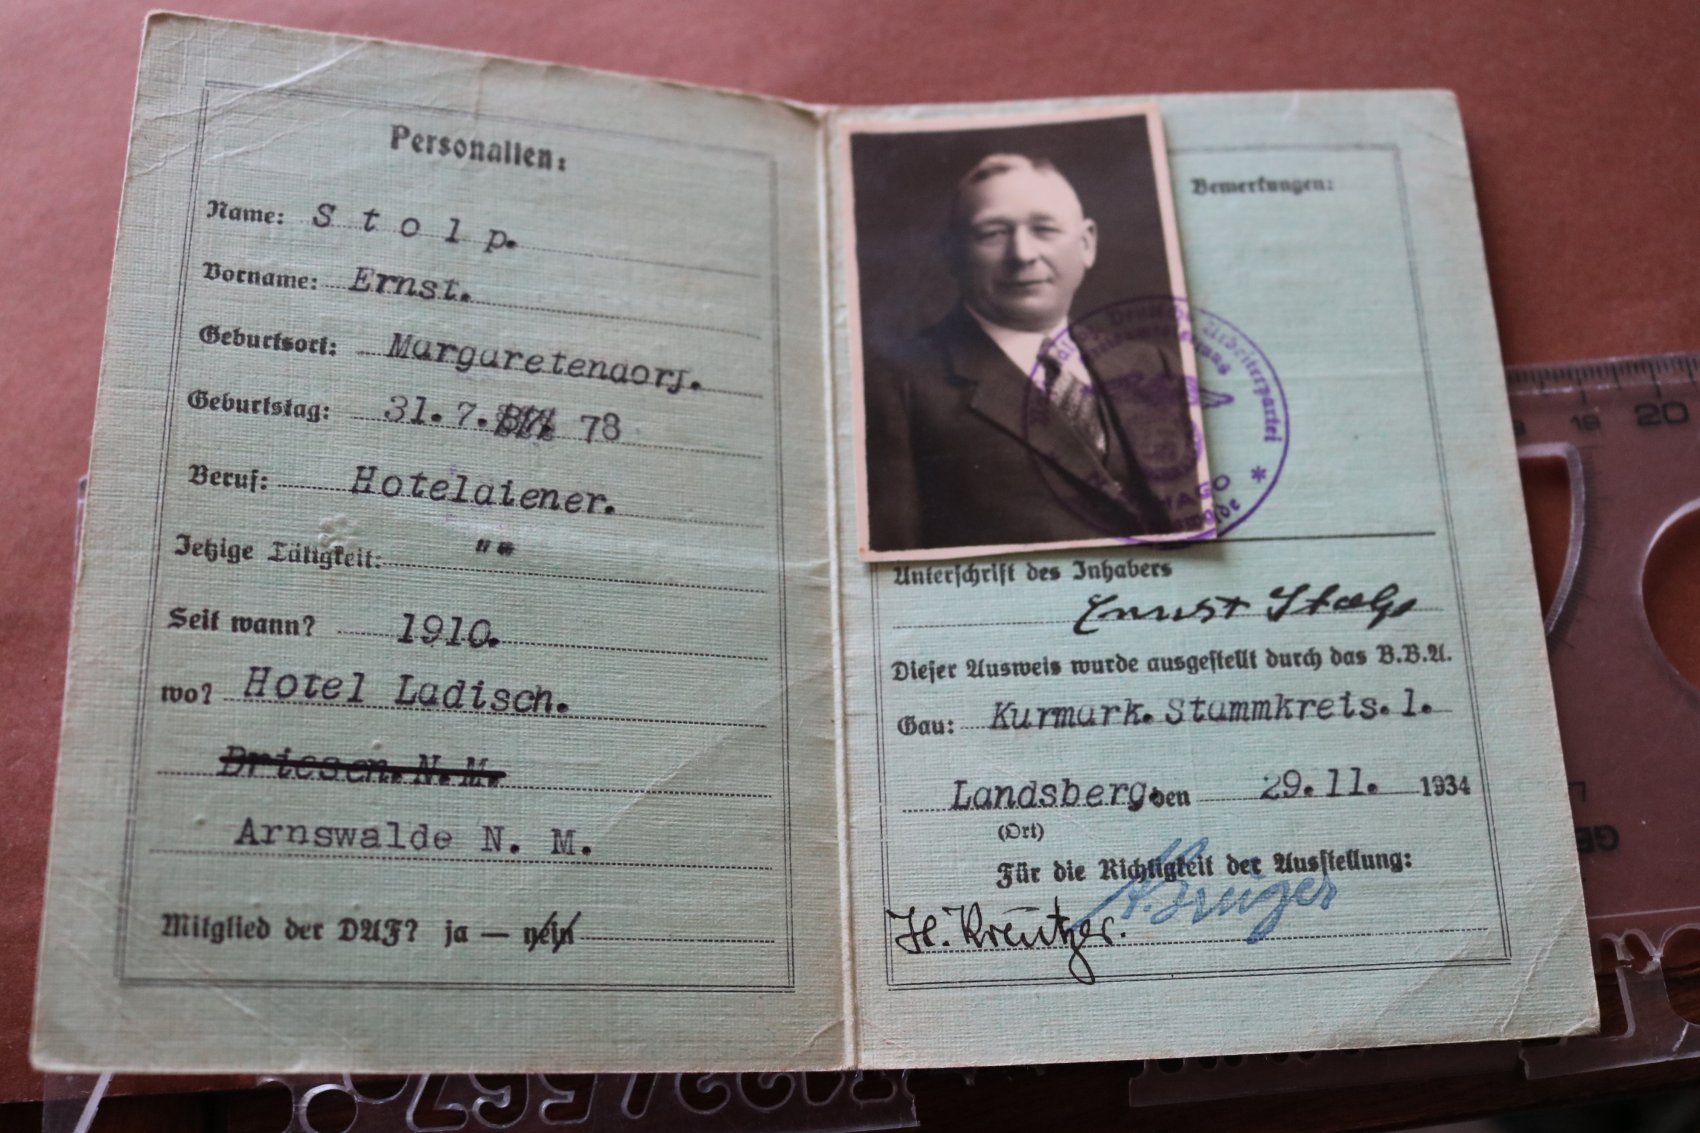 Personalien:
Name: Stolp.
Vorname: Ernst.
Geburtsort: Margaretendorf.
Geburtstag: 31. 7. 78
Beruf: Hoteldiener.
Jetzige Tätigkeit: "" 
Seit wann? 1910.
wo? Hotel Ladisch.
Driesen. N. M.
Arnswalde N. M.
Mitglied der DAF? ja — nein
Bemerkungen:
Deutsche Arbeiterpartei
HAGO
Unterschrift des Inhabers
Ernst Stolp
Dieser Ausweis wurde ausgestellt durch das B.B.A.
Gau: Kurmark. Stammkreis. 1.
Landsberg. den 29. 11. 1934
(Ort)
Für die Richtigkeit der Ausstellung:
Kreutzer. Krüger
19 20